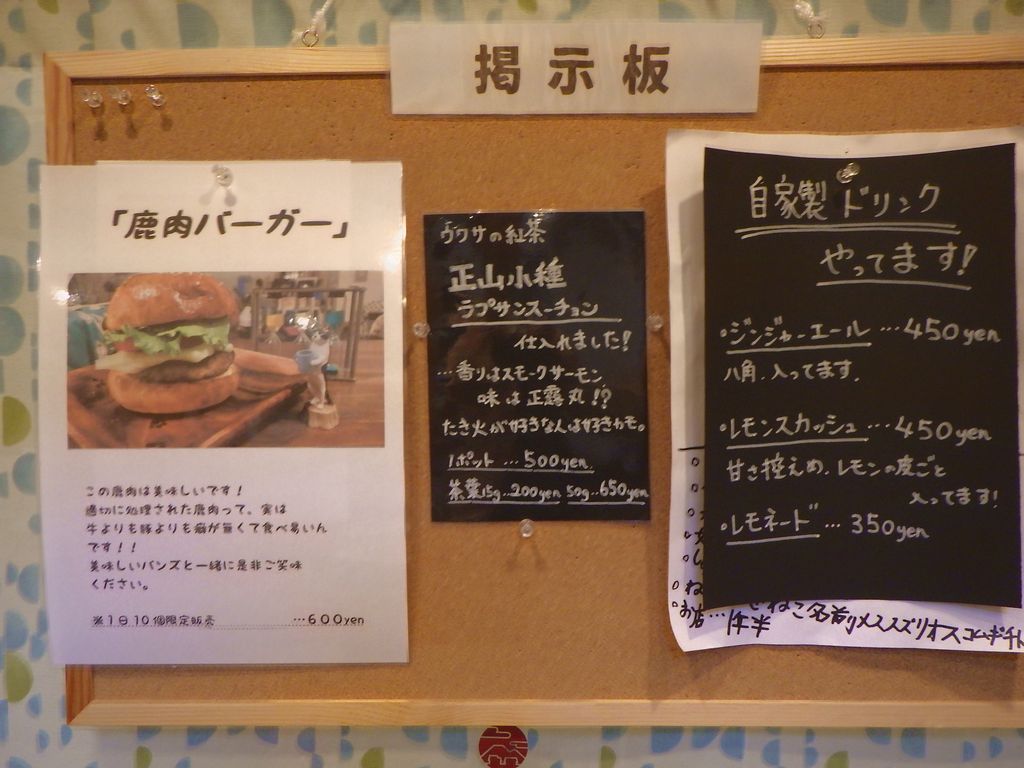 掲示板
「鹿肉バーガー」
この鹿肉は美味しいです！
適切に処理された鹿肉って。実は
牛よりも豚よりも癖が無くて食べ易いん
です！！
美味しいバンズと一緒に是非ご笑味
ください。
※１日１０個限定販売 …６００yen
ウワサの紅茶
正山小種
ラプサンスーチョン
仕入れました!
…香りはスモークサーモン
味は正露丸!?
たき火が好きな人は好きカモ。
1ポット…500yen.
茶葉15g…200yen 50g…650yen
自家製ドリンク
やってます!
・ジンジャーエール…450yen
八角、入ってます。
・レモンスカッシュ…450yen
甘さ控えめ、レモンの皮ごと
入ってます!
・レモネード…350yen
。ね
。お店…
1年半